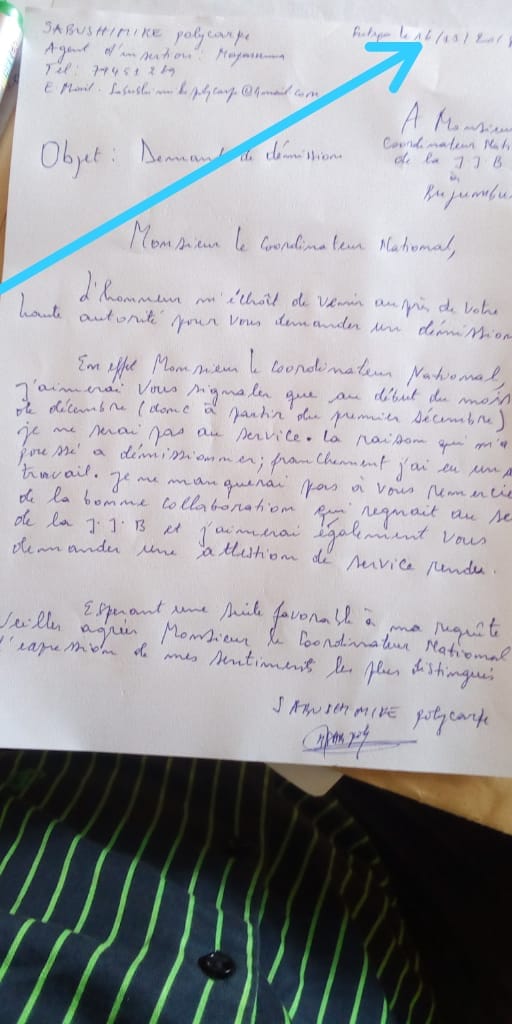 SABUSHIMIKE polycarpe
Agent d'insertion:
Tél:
E Mail.
le 16/
A Monsieur
Coordinateur Nati
de la J J B
à
Bujumbu
Objet: Demande de démission
Monsieur le Coordinateur National,
L'honneur m'échoit de venir auprès de votre
haute autorité pour vous demander un démission
En effet Monsieur le coordinateur National,
j'aimerai vous signaler que au début du mois
de décembre (donc à partir du premier décembre)
je ne serai pas au service. La raison qui m'a
poussé a démissionner; franchement j'ai eu un
travail. je ne manquerai pas à vous remercie
de la bonne collaboration qui regnait au se
de la J.J.B et j'aimerai également vous
demander une attestion de service rendu.
Esperant une suite favorable à ma requête
Veillez agréer Monsieur le Coordinateur National
l'expression de mes sentiments les plus distingués
SABUSHIMIKE polycarpe